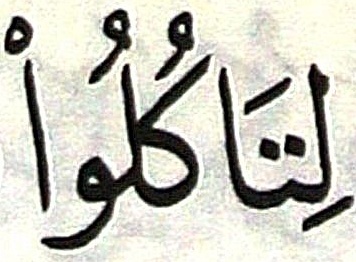 لِتَاكُلُواْ